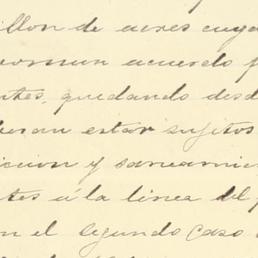 illon de acres cuya
comun acuerdo p
ntes, quedando desd
beran estar sujetos
icion y saneamie
tes á la linea del p
n el segundo caso